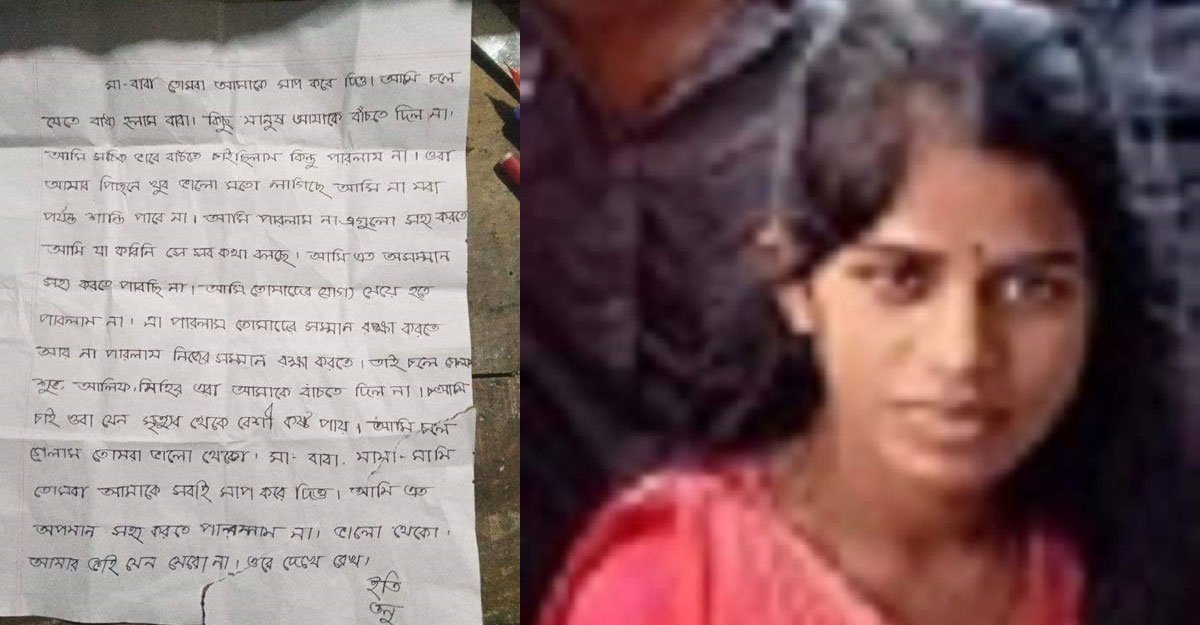 মা-বাবা তোমরা আমাকে মাপ করে দিও। আমি চলে
যেতে বাধ্য হলাম বাবা। কিছু মানুষ আমাকে বাঁচতে দিল না।
আমি সঠিক ভাবে বাঁচতে চাইছিলাম কিন্তু পারলাম না। ওরা
আমার পিছনে খুব ভালো মতো লাগিছে আমি না মরা
পর্যন্ত শান্তি পাবে না। আমি পারলাম না এগুলো সহ্য করতে
আমি যা করিনি সে সব কথা বলছে। আমি এত অসম্মান
সহ্য করতে পারছি না। আমি তোমাদের যোগ্য মেয়ে হতে
পারলাম না। না পারলাম তোমাদের সম্মান রক্ষা করতে
আর না পারলাম নিজের সম্মান রক্ষা করতে। তাই চলে গেলাম
আলিফ, মিহির ওরা আমাকে বাঁচতে দিল না। আমি
চাই ওরা যেন মৃত্যুর থেকে বেশী কষ্ট পায়। আমি চলে
গেলাম তোমরা ভালো থেকো। মা- বাবা, মামা- মামি
তোমরা আমাকে সবাই মাপ করে দিও। আমি এত
অপমান সহ্য করতে পারলাম না। ভালো থেকো।
আমার যেন না। ওরে দেখে রেখ।
ইতি
তনু